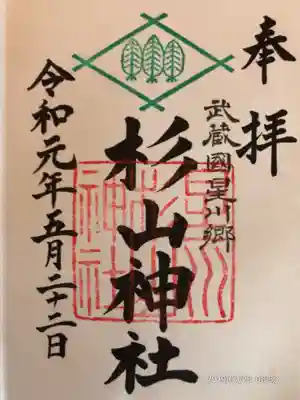 奉拝
武蔵國星川郷
杉山神社
令和元年五月二十二日